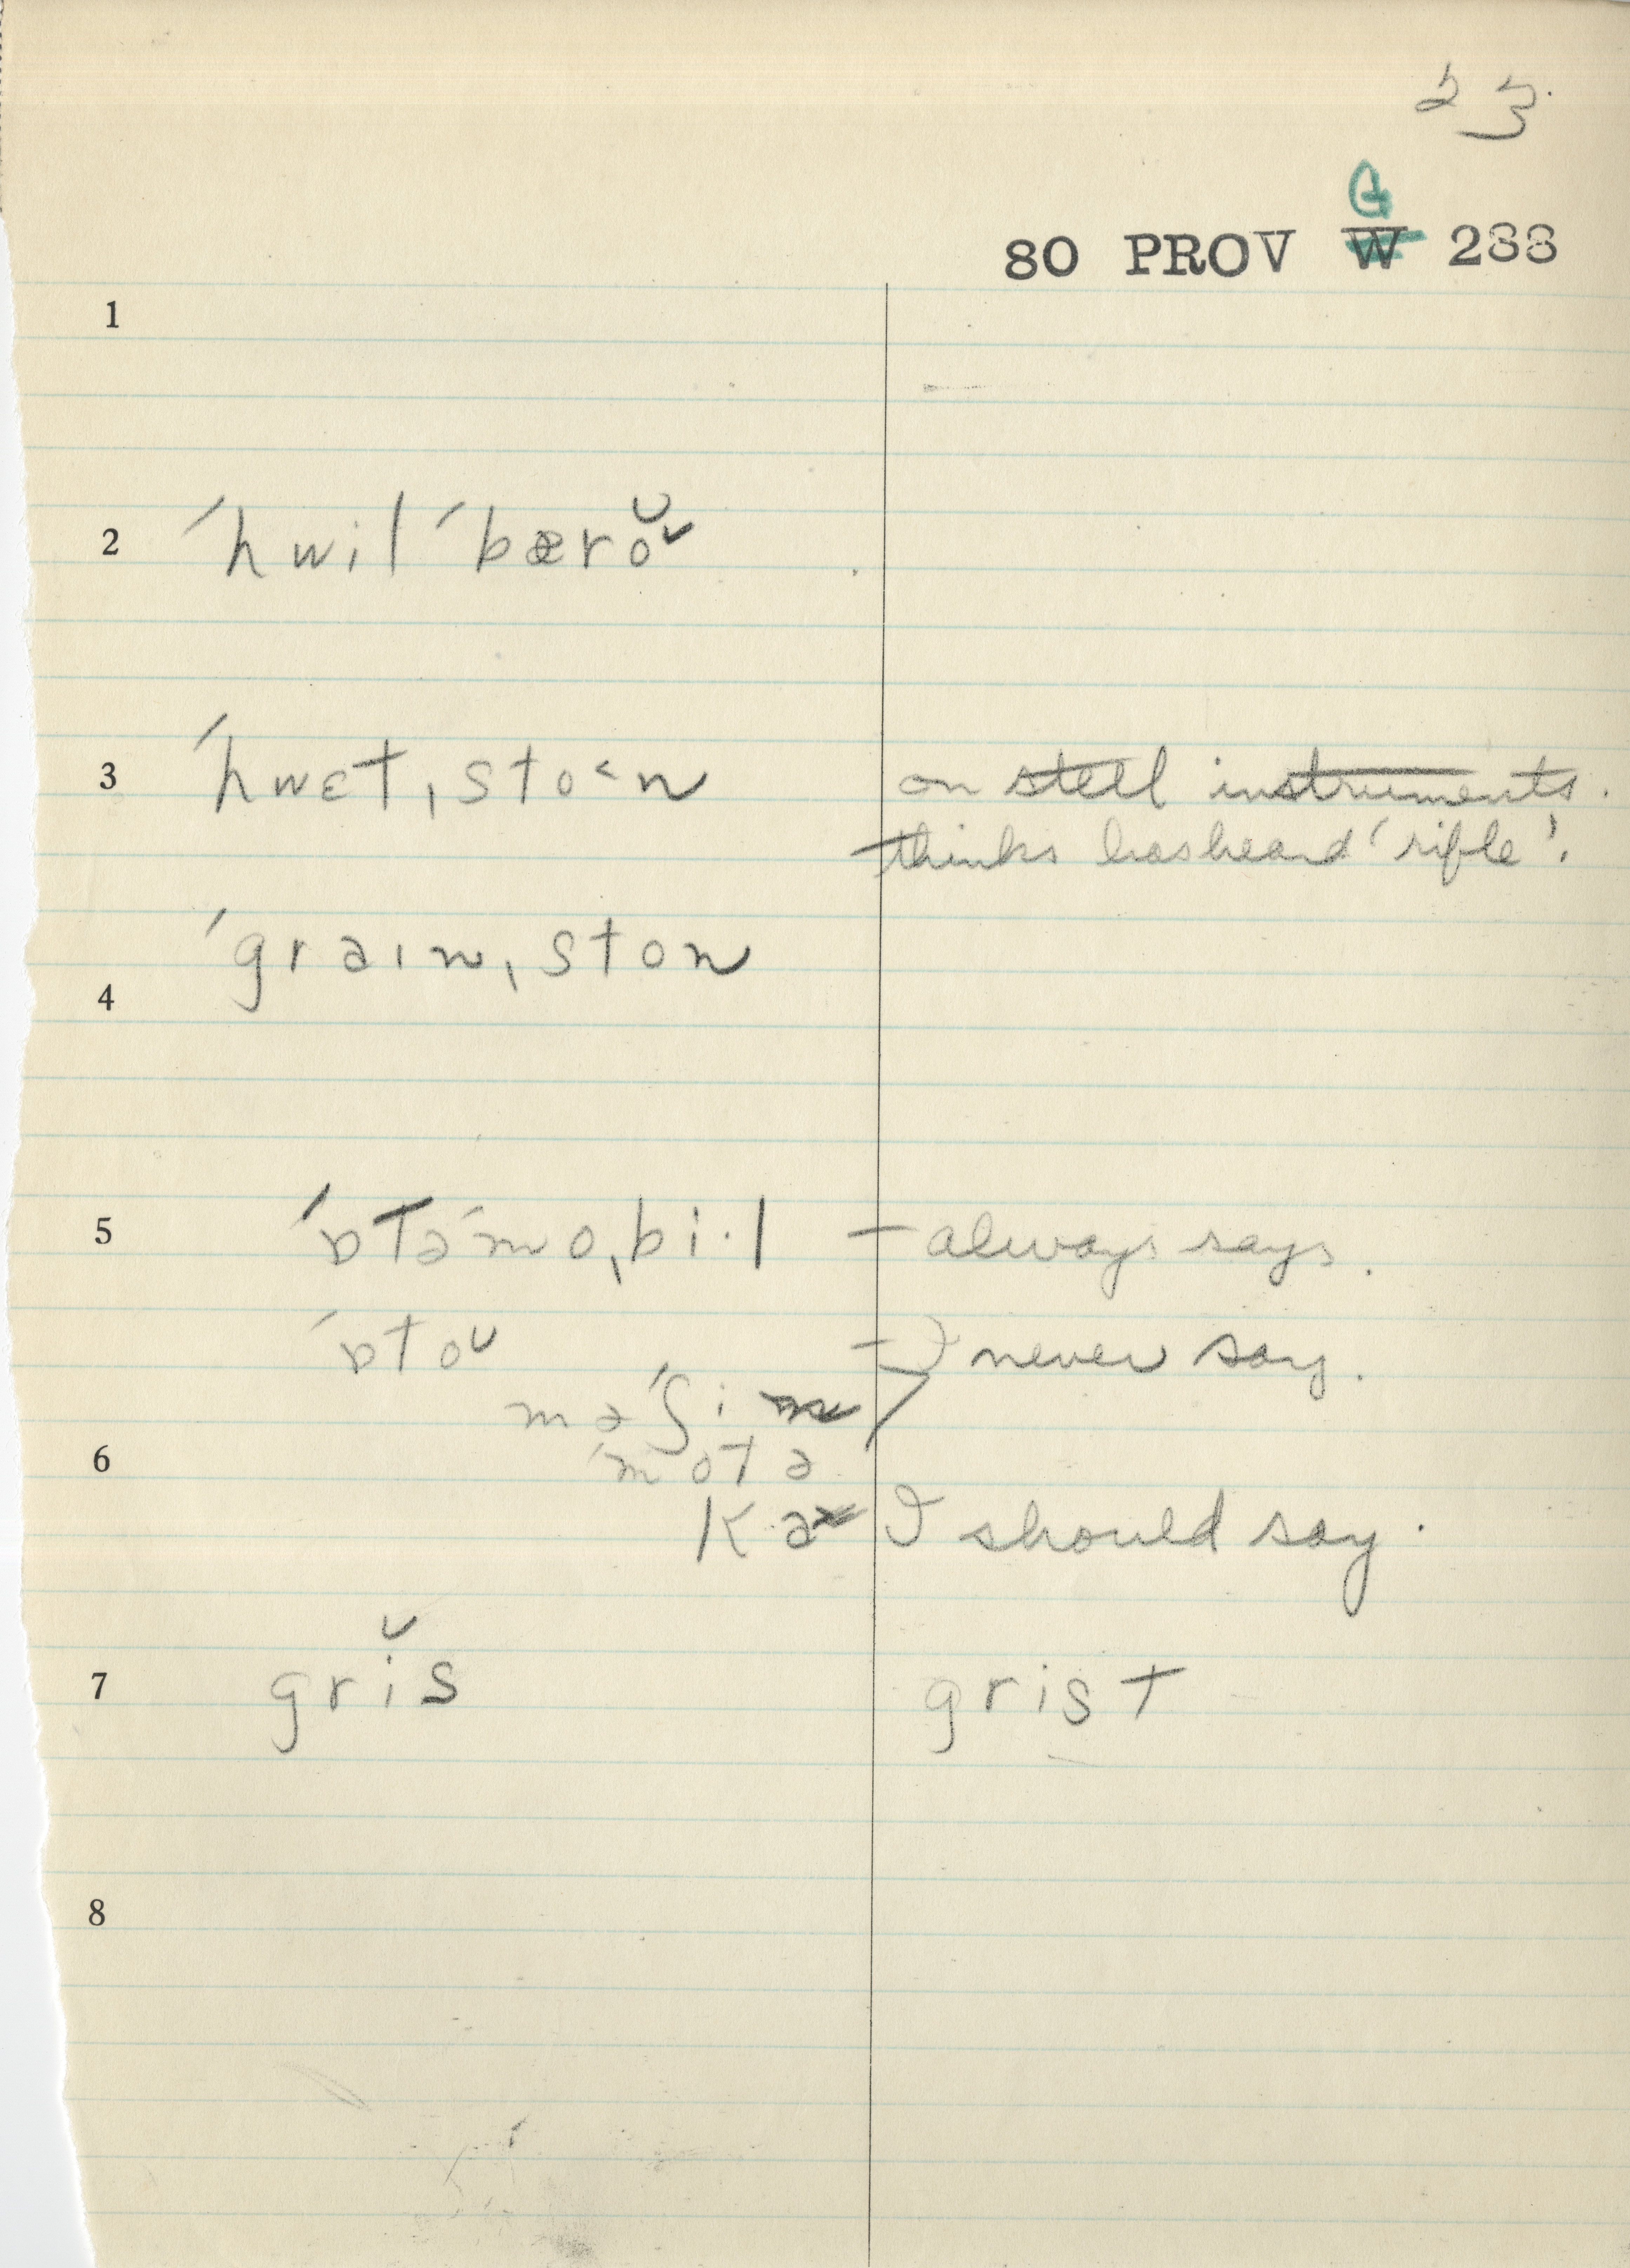 23.
G
80 PROV W 288
1
2 ˈhwilˈbærŏ˅
3 ˈhwɛt,sto˂n on steel instruments.
thinks has heard 'rifle'.
ˈgraɪn,ston
4
5 ˈɒtəˈmo,bi·l – always says.
ˈɒtoᴜ – I never say.
məˈʃi
6 ˈmotə
kɑ I should say.
7 grĭs grist
8